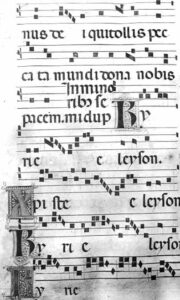 nus de i qui tollis pec
ca ta mundi dona nobis
In minoribus
pacem. mi dup Ky
rie e leyson.
Xpiste e leyson
Ky ri e leyson
Ky rie